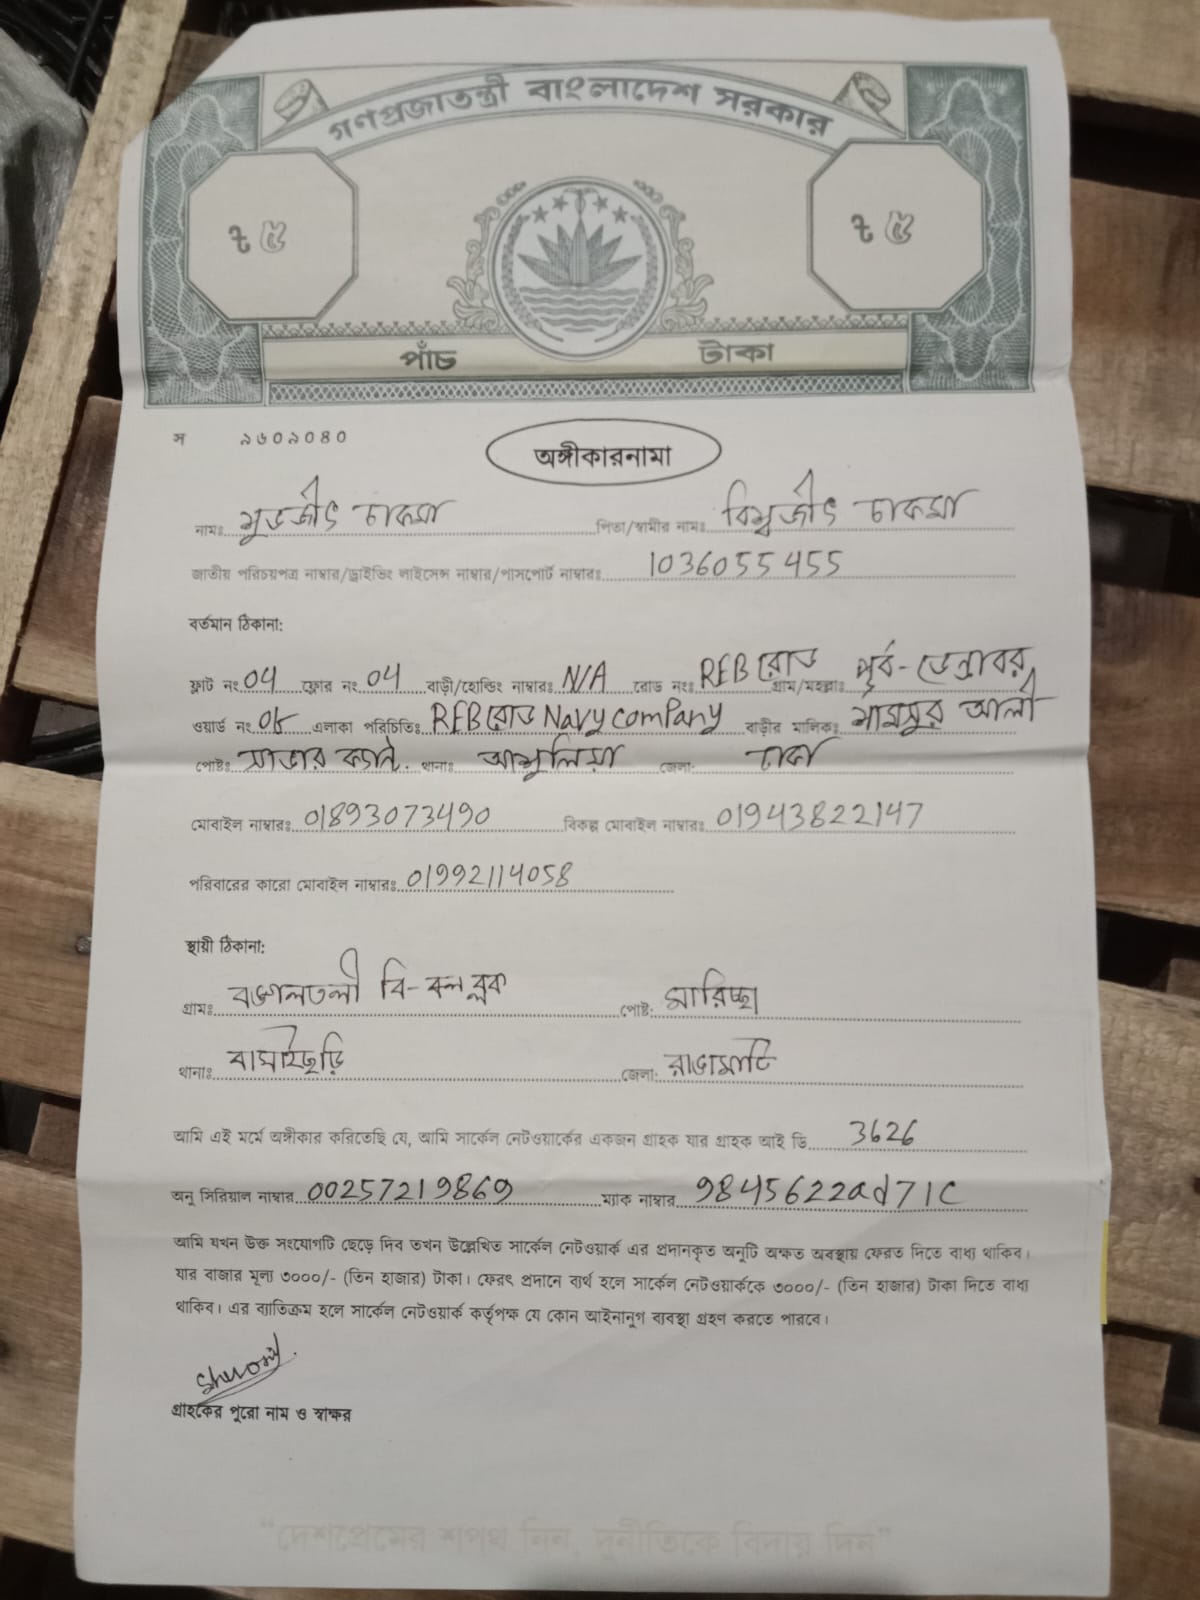 গণপ্রজাতন্ত্রী বাংলাদেশ সরকার
৳ ৫ ৳ ৫
পাঁচ টাকা
স ৯৬০৯০৪০
অঙ্গীকারনামা
নামঃ চাকমা পিতা/স্বামীর নামঃ বিশ্বজীৎ চাকমা
জাতীয় পরিচয়পত্র নাম্বার/ড্রাইভিং লাইসেন্স নাম্বার/পাসপোর্ট নাম্বারঃ 1036055455
বর্তমান ঠিকানা:
ফ্লাট নং 04 ফ্লোর নং 04 বাড়ী/হোল্ডিং নাম্বারঃ N/A রোড নংঃ REB রোড গ্রাম/মহল্লাঃ পূর্ব-ডেন্ডাবর
ওয়ার্ড নং এলাকা পরিচিতিঃ REB রোড Navy company বাড়ীর মালিকঃ আলী
পোষ্টঃ সাভার ক্যান্ট. থানাঃ আশুলিয়া জেলা: ঢাকা
মোবাইল নাম্বারঃ 01893073490 বিকল্প মোবাইল নাম্বারঃ 01943822147
পরিবারের কারো মোবাইল নাম্বারঃ 01992114058
স্থায়ী ঠিকানা:
গ্রামঃ বঙ্গালতলী বি-ব্লক পোষ্ট: মারিচ্ছা
থানাঃ বাঘাইছড়ি জেলা: রাঙামাটি
আমি এই মর্মে অঙ্গীকার করিতেছি যে, আমি সার্কেল নেটওয়ার্কের একজন গ্রাহক যার গ্রাহক আই ডি 3626
অনু সিরিয়াল নাম্বার 00257219869 ম্যাক নাম্বার 9845622ad71c
আমি যখন উক্ত সংযোগটি ছেড়ে দিব তখন উল্লেখিত সার্কেল নেটওয়ার্ক এর প্রদানকৃত অনুটি অক্ষত অবস্থায় ফেরত দিতে বাধ্য থাকিব।
যার বাজার মূল্য ৩০০০/- (তিন হাজার) টাকা। ফেরৎ প্রদানে ব্যর্থ হলে সার্কেল নেটওয়ার্ককে ৩০০০/- (তিন হাজার) টাকা দিতে বাধ্য
থাকিব। এর ব্যাতিক্রম হলে সার্কেল নেটওয়ার্ক কর্তৃপক্ষ যে কোন আইনানুগ ব্যবস্থা গ্রহণ করতে পারবে।
গ্রাহকের পুরো নাম ও স্বাক্ষর
"দেশপ্রেমের শপথ নিন, দুর্নীতিকে বিদায় দিন"